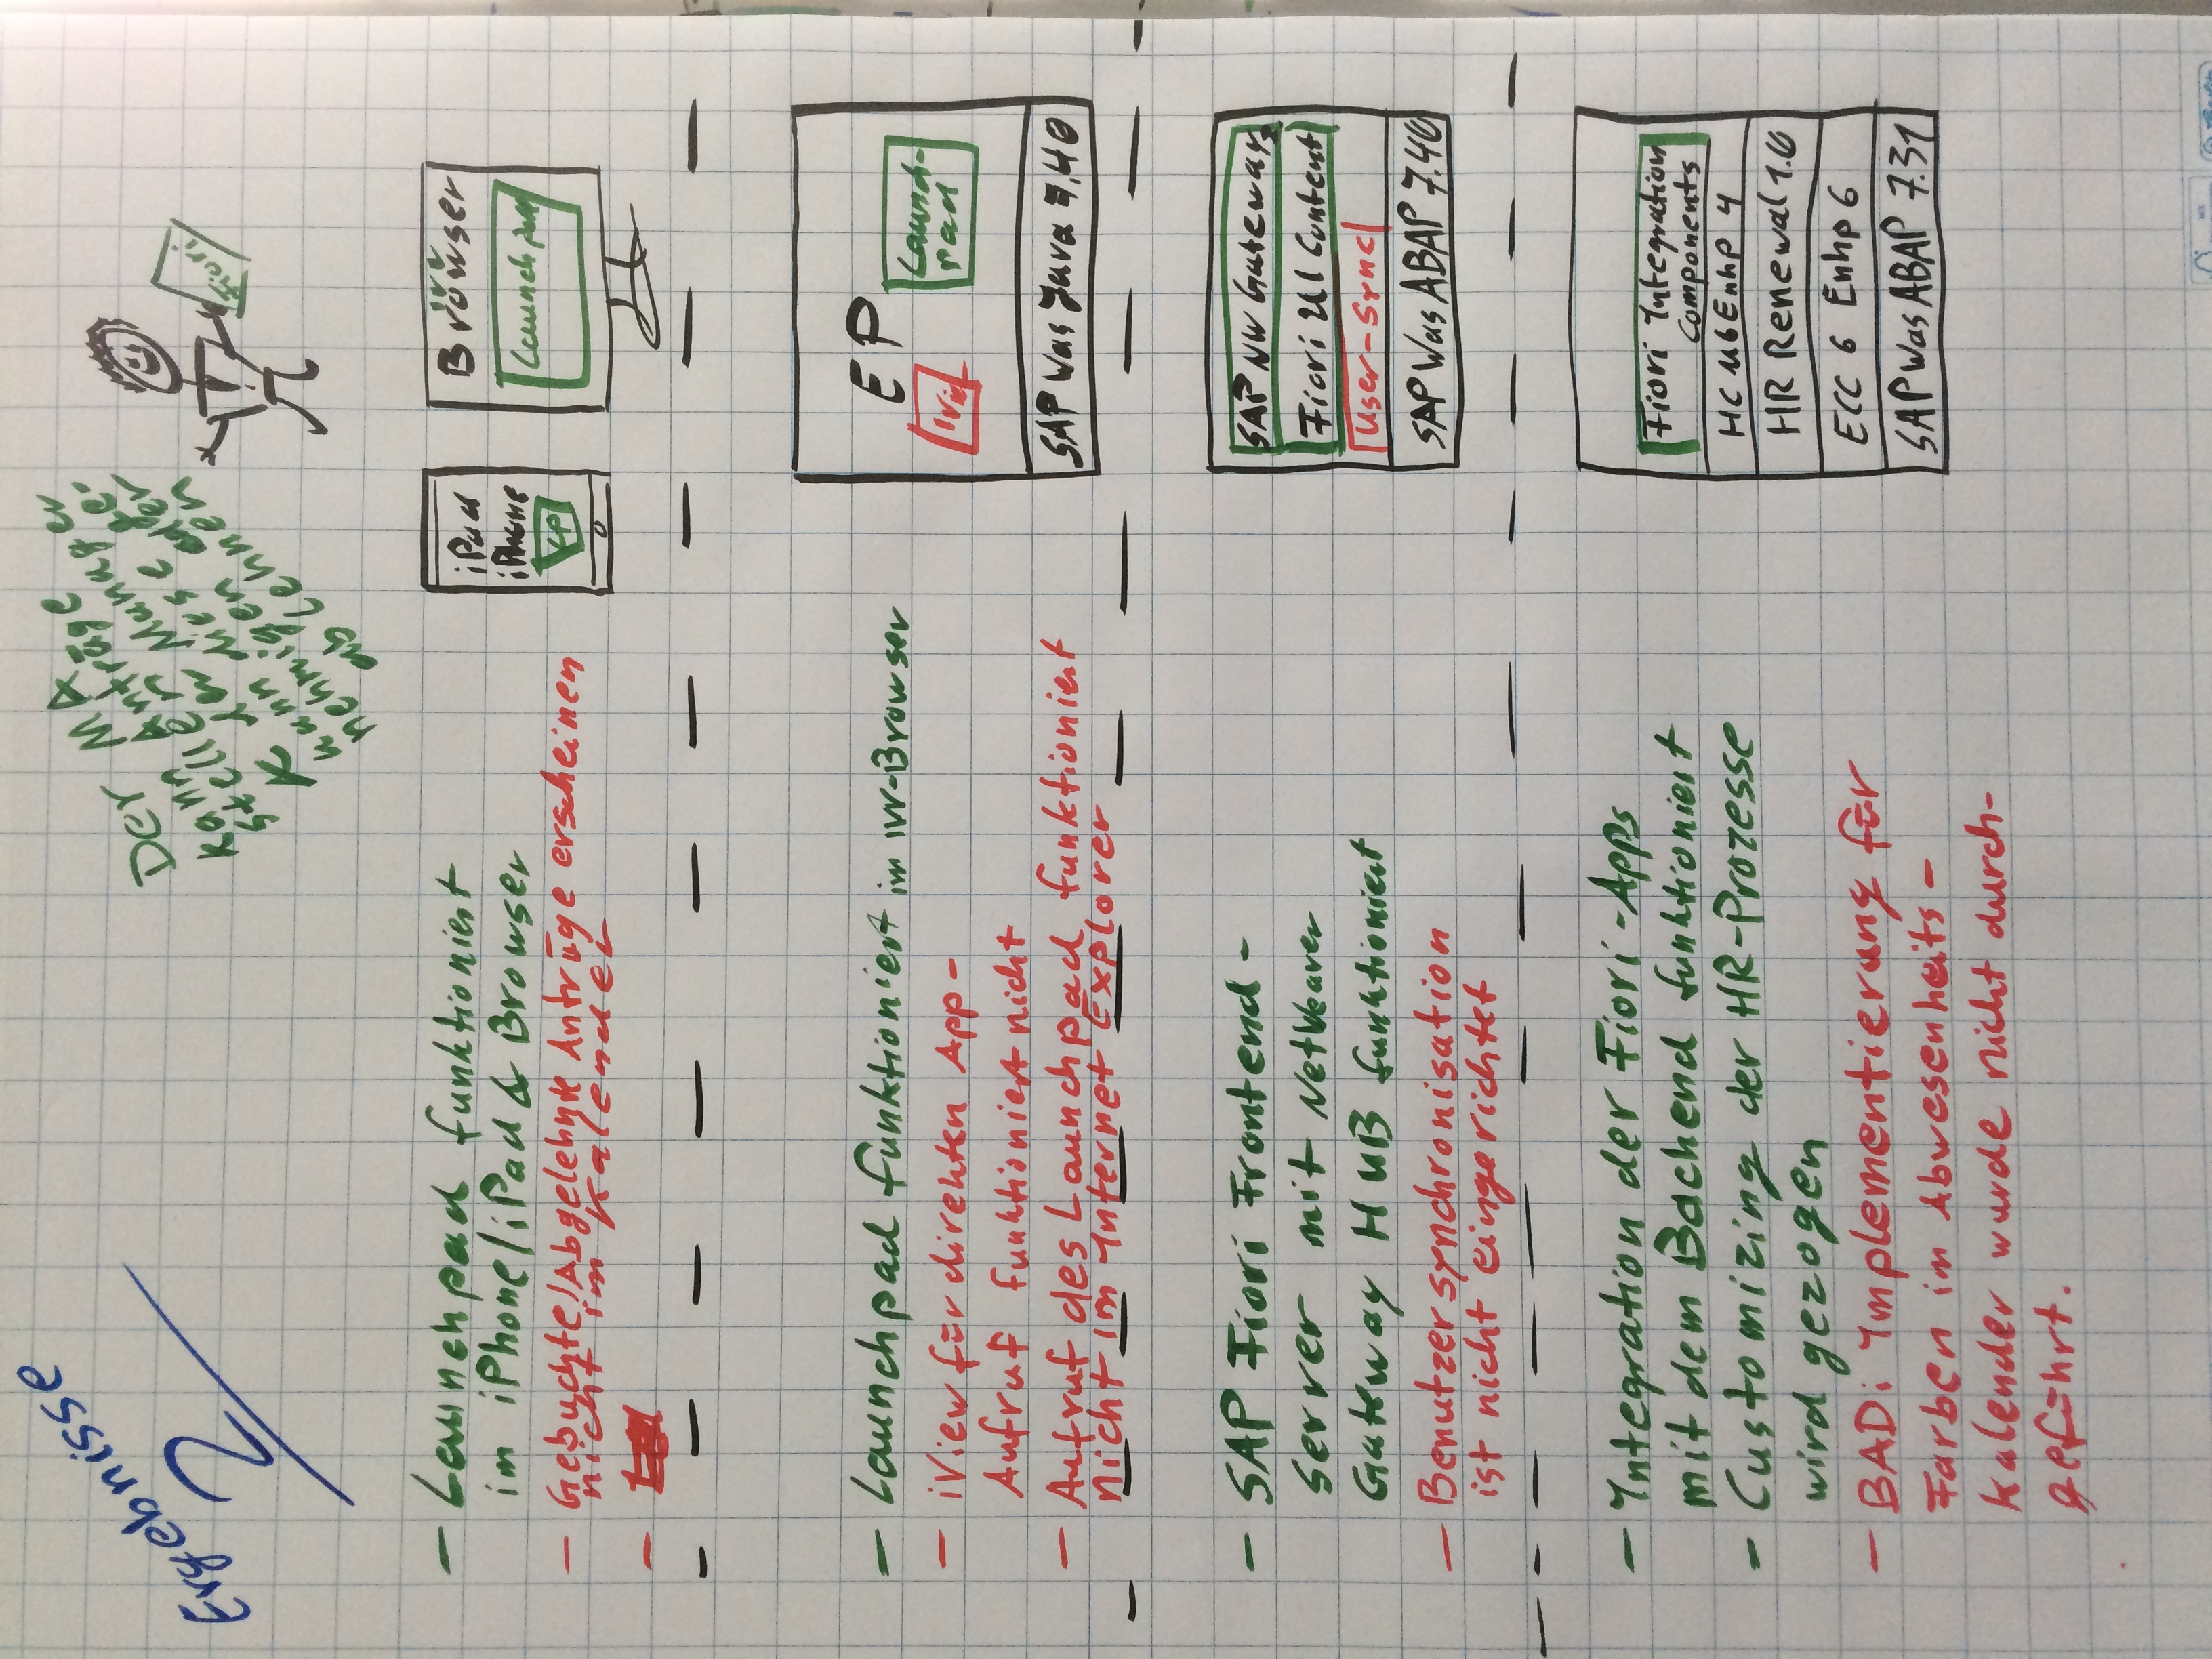 Ergebnisse
2
Der MA
kann Anträge
stellen
der Manager
kann diese ge-
nehmigen oder
ablehnen
Fiori
- Launchpad funktioniert
im iPhone/iPad & Browser
- Gebuchte/Abgelehnte Anträge erscheinen
nicht im Kalender
-
iPad
iPhone
LP
Browser
Launchpad
- Launchpad funktioniert im -Browser
- iView für direkten App-
Aufruf funktioniert nicht
- Aufruf des Launchpad funktioniert
nicht im Internet Explorer
EP
Launch-
pad
SAP Was Java 7.40
- SAP Fiori Frontend-
Server mit NetWeaver
Gateway HUB funktioniert
- Benutzersynchronisation
ist nicht eingerichtet
SAP NW Gateway
Fiori UI Content
User-Sync
SAP Was ABAP 7.40
- Integration der Fiori-Apps
mit dem Backend funktioniert
- Customizing der HR-Prozesse
wird gezogen
- BADi Implementierung für
Farben im Abwesenheits-
kalender wurde nicht durch-
geführt.
Fiori Integration
Components
Enhp 4
HR Renewal 1.0
ECC 6 Enhp 6
SAP Was ABAP 7.31